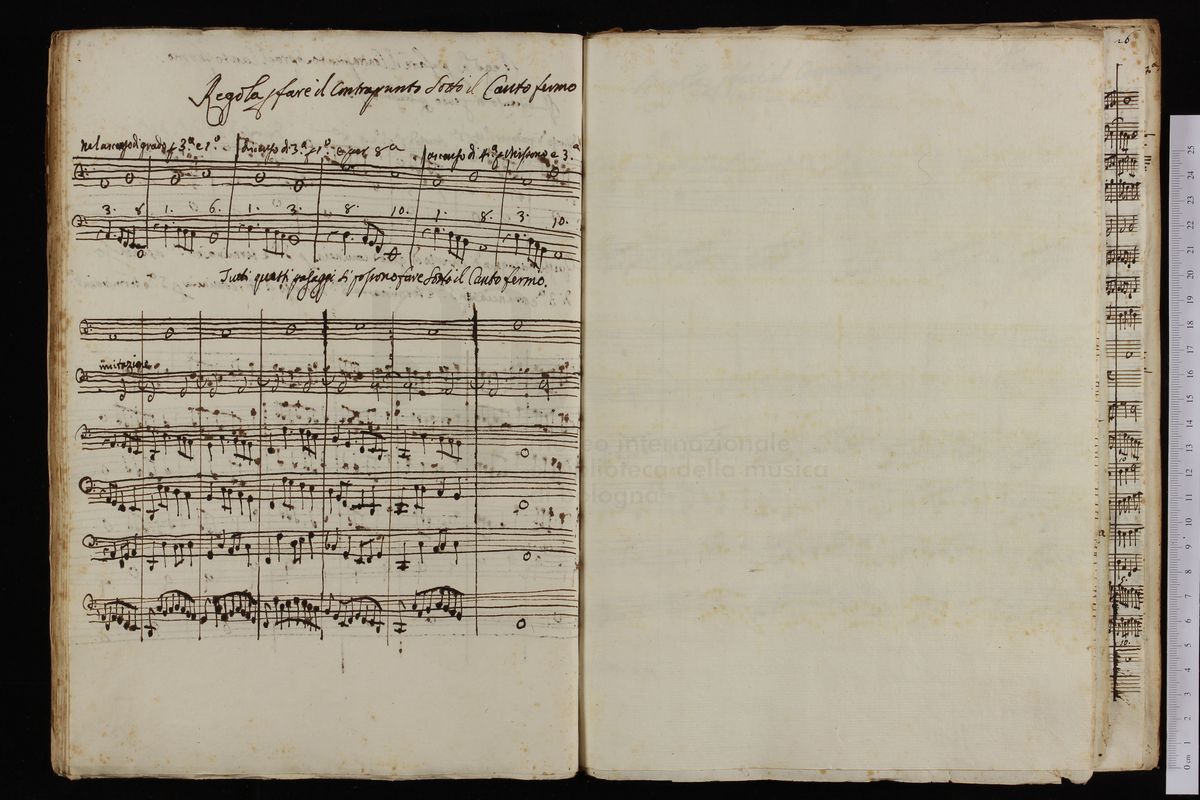 Regola p fare il Contrapunto Sotto il Canto fermo
nel ascenso di grado p 3.ª e 1.º ascenso di 3.ª p 1.º e per 8ª ascenso di 4.ª p Unisono e 3.ª
3. 8. 1. 6. 1. 3. 8. 10. 1. 8. 3. 10.
Tutti questi passaggi si possono fare Sotto il Canto fermo.
imitazione
museo internazionale
e biblioteca della musica
di bologna
26
0 cm 1 2 3 4 5 6 7 8 9 10 11 12 13 14 15 16 17 18 19 20 21 22 23 24 25